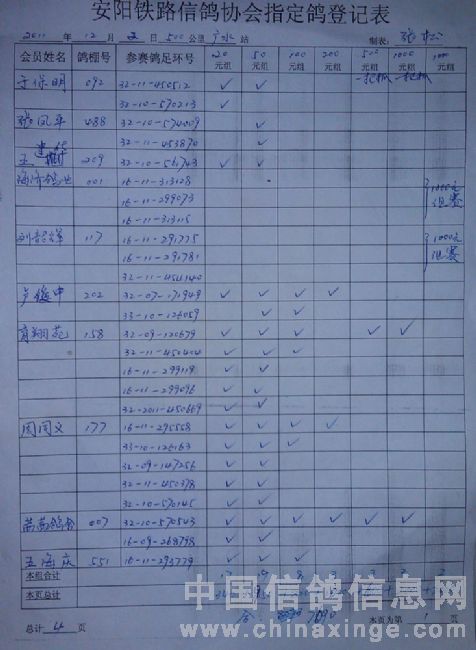 安阳铁路信鸽协会指定鸽登记表
2011年12月2日500公里广水站 制表:张松
会员姓名 鸽棚号 参赛鸽足环号 20元组 50元组 100元组 200元组 500元组 1000元组 1000元组
于保明 092 32-11-450512 ✓ ✓ 一把抓 一把抓
32-10-570213 ✓
张凤年 488 32-10-574009 ✓
32-11-453870 ✓
王建林 209 32-10-561743 ✓ ✓
海济鸽业 001 16-11-313128 1000元组赛
16-11-299073
16-11-313115
刘韶军 117 16-11-291775 1000元组赛
16-11-291781
32-11-454140
卢俊中 202 32-07-171949 ✓ ✓ ✓ ✓
33-10-126059 ✓ ✓
育翔苑 158 32-09-120679 ✓ ✓ ✓ ✓ ✓
32-11-450404 ✓ ✓ ✓
16-11-299119 ✓
16-11-299096 ✓ ✓
32-2011-450669 ✓ ✓
周同文 177 16-11-295558 ✓ ✓ ✓ ✓
33-10-126163 ✓ ✓ ✓
32-09-147256 ✓ ✓
32-11-450378 ✓ ✓
32-10-570145 ✓ ✓
苗苗鸽舍 007 32-10-570543 ✓ ✓ ✓ ✓ ✓ ✓
16-09-268798 ✓ ✓
王海庆 551 16-11-293779 ✓ ✓
本组合计
本页总计
合: 7690
总计 页 本页为第 1 页
中国信鸽信息网
www.chinaxinge.com